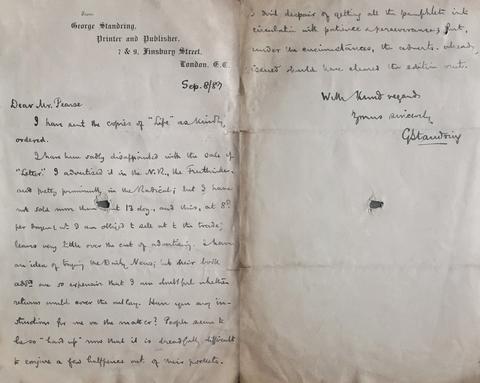 From
George Standring,
Printer and Publisher,
7 & 9, Finsbury Street,
London, E.C.
Sep. 8/87
Dear Mr. Pearse
I have sent the copies of "Life" as kindly
ordered.
I have been sadly disappointed with the sale of
"Letter." I advertised it in the N.R., the Freethinker,
and pretty prominently in the Radical; but I have
not sold more than 13 doz. and this, at 8d.
per dozen (wh. I am obliged to sell at to the trade)
leaves very little over the cost of advertising. I have
an idea of trying the Daily News; but their book
advts. are so expensive that I am doubtful whether
returns would cover the outlay. Have you any in-
structions for me on the matter? People seem to
be so "hard up" now that it is dreadfully difficult
to conjure a few halfpence out of their pockets.
I don't despair of getting all the pamphlets into
circulation with patience & perseverance; but,
under the circumstances, the advts. already
issued should have cleared the edition out.
With kind regards
Yours sincerely
G Standring